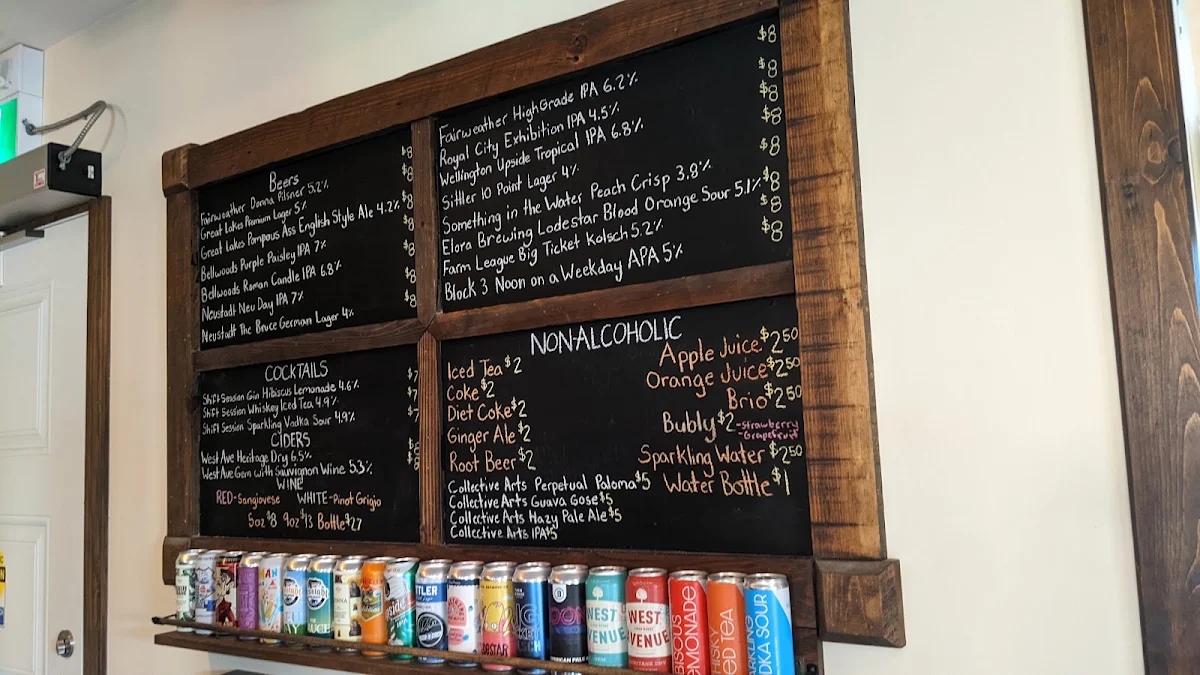 Beers
Fairweather Donna Pilsner 5.2% $8
Great Lakes Premium Lager 5% $8
Great Lakes Pompous Ass English Style Ale 4.2% $8
Bellwoods Purple Paisley IPA 7% $8
Bellwoods Roman Candle IPA 6.8% $8
Neustadt Neu Day IPA 7% $8
Neustadt The Bruce German Lager 4% $8
Fairweather High Grade IPA 6.2% $8
Royal City Exhibition IPA 4.5% $8
Wellington Upside Tropical IPA 6.8% $8
Sittler 10 Point Lager 4% $8
Something in the Water Peach Crisp 3.8% $8
Elora Brewing Lodestar Blood Orange Sour 5.1% $8
Farm League Big Ticket Kolsch 5.2% $8
Block 3 Noon on a Weekday APA 5% $8
COCKTAILS
Shift Session Gin Hibiscus Lemonade 4.6% $7
Shift Session Whiskey Iced Tea 4.9% $7
Shift Session Sparkling Vodka Sour 4.9% $7
CIDERS
West Ave Heritage Dry 6.5% $8
West Ave Gem with Sauvignon Wine 5.3% $8
WINE
RED-Sangiovese WHITE-Pinot Grigio
5oz $8 9oz $13 Bottle $27
NON-ALCOHOLIC
Iced Tea $2
Coke $2
Diet Coke $2
Ginger Ale $2
Root Beer $2
Collective Arts Perpetual Paloma $5
Collective Arts Guava Gose $5
Collective Arts Hazy Pale Ale $5
Collective Arts IPA $5
Apple Juice $2.50
Orange Juice $2.50
Brio $2.50
Bubly $2 -Strawberry
-Grapefruit
Sparkling Water $2.50
Water Bottle $1
WEST
VENUE
WEST
VENUE
BISCUS
EMONADE
HISKY
ED TEA
ARKLING
DKA SOUR